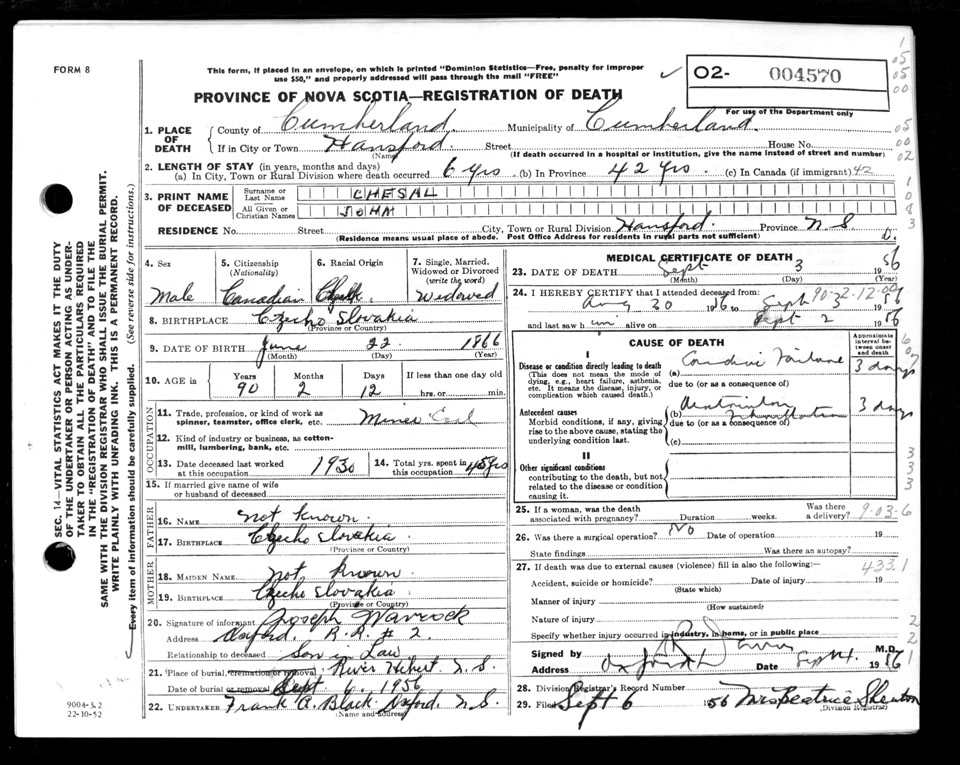 FORM 8
This form, if placed in an envelope, on which is printed "Dominion Statistics—Free, penalty for improper
use $50," and properly addressed will pass through the mail "FREE"
02- 004570
For use of the Department only
PROVINCE OF NOVA SCOTIA—REGISTRATION OF DEATH
1. PLACE OF DEATH
County of Cumberland Municipality of Cumberland
If in City or Town Hansford Street House No.
(Name) (If death occurred in a hospital or institution, give the name instead of street and number)
2. LENGTH OF STAY (in years, months and days)
(a) In City, Town or Rural Division where death occurred 6 yrs (b) In Province 42 yrs. (c) In Canada (if immigrant) 42
3. PRINT NAME OF DECEASED
Surname or Last Name CHESAL
All Given or Christian Names JOHN
RESIDENCE No. Street City, Town or Rural Division Hansford. Province N.S.
(Residence means usual place of abode. Post Office Address for residents in rural parts not sufficient)
4. Sex
Male
5. Citizenship (Nationality)
Canadian
6. Racial Origin
7. Single, Married, Widowed or Divorced (write the word)
Widowed
8. BIRTHPLACE Czecho Slovakia
(Province or Country)
9. DATE OF BIRTH June 22 1866
(Month) (Day) (Year)
10. AGE in Years Months Days If less than one day old
90 2 12 hrs. or min.
OCCUPATION
11. Trade, profession, or kind of work as
spinner, teamster, office clerk, etc. Miner Coal
12. Kind of industry or business, as cotton-
mill, lumbering, bank, etc.
13. Date deceased last worked
at this occupation 1930
14. Total yrs. spent in
this occupation 45 yrs
15. If married give name of wife
or husband of deceased
FATHER
16. NAME not known.
17. BIRTHPLACE Czecho Slovakia
(Province or Country)
MOTHER
18. MAIDEN NAME not known
19. BIRTHPLACE Czecho Slovakia
(Province or Country)
20. Signature of informant Joseph
Address Oxford. R.R. # 2.
Relationship to deceased Son in Law
21. Place of burial, cremation or removal, River Hebert N.S.
Date of burial or removal Sept 6, 1956
22. UNDERTAKER Frank A. Black. Oxford. N.S.
(Name and address)
MEDICAL CERTIFICATE OF DEATH
23. DATE OF DEATH Sept 3 1956
(Month) (Day) (Year)
24. I HEREBY CERTIFY that I attended deceased from:
Aug 20 1956 to Sept 3 1956
and last saw him alive on Sept 2 1956
90-2-12-00
CAUSE OF DEATH
Approximate interval between onset and death
I
Disease or condition directly leading to death
(This does not mean the mode of
dying, e.g., heart failure, asthenia,
etc. It means the disease, injury, or
complication which caused death.)
(a) Cardiac Failure 3 days
due to (or as a consequence of)
Antecedent causes
Morbid conditions, if any, giving
rise to the above cause, stating the
underlying condition last.
(b) Fibrillation 3 days
due to (or as a consequence of)
(c)
II
Other significant conditions
contributing to the death, but not
related to the disease or condition
causing it.
25. If a woman, was the death
associated with pregnancy? Duration weeks. Was there a delivery?
9-03-6
26. Was there a surgical operation? No Date of operation 19
State findings Was there an autopsy?
27. If death was due to external causes (violence) fill in also the following:—
433.1
Accident, suicide or homicide? Date of injury 19
(State which)
Manner of injury
(How sustained)
Nature of injury
Specify whether injury occurred in industry, in home, or in public place
Signed by M.D.
Address Oxford Date Sept 1956
28. Division Registrar's Record Number
29. Filed Sept 6 1956 Mrs Beatrice Shenton
(Division Registrar)
SEC. 14—VITAL STATISTICS ACT MAKES IT THE DUTY
OF THE UNDERTAKER OR PERSON ACTING AS UNDER-
TAKER TO OBTAIN ALL THE PARTICULARS REQUIRED
IN THE "REGISTRATION OF DEATH" AND TO FILE THE
SAME WITH THE DIVISION REGISTRAR WHO SHALL ISSUE THE BURIAL PERMIT.
WRITE PLAINLY WITH UNFADING INK. THIS IS A PERMANENT RECORD.
Every item of information should be carefully supplied. (See reverse side for instructions.)
9004-3.2
22-10-52